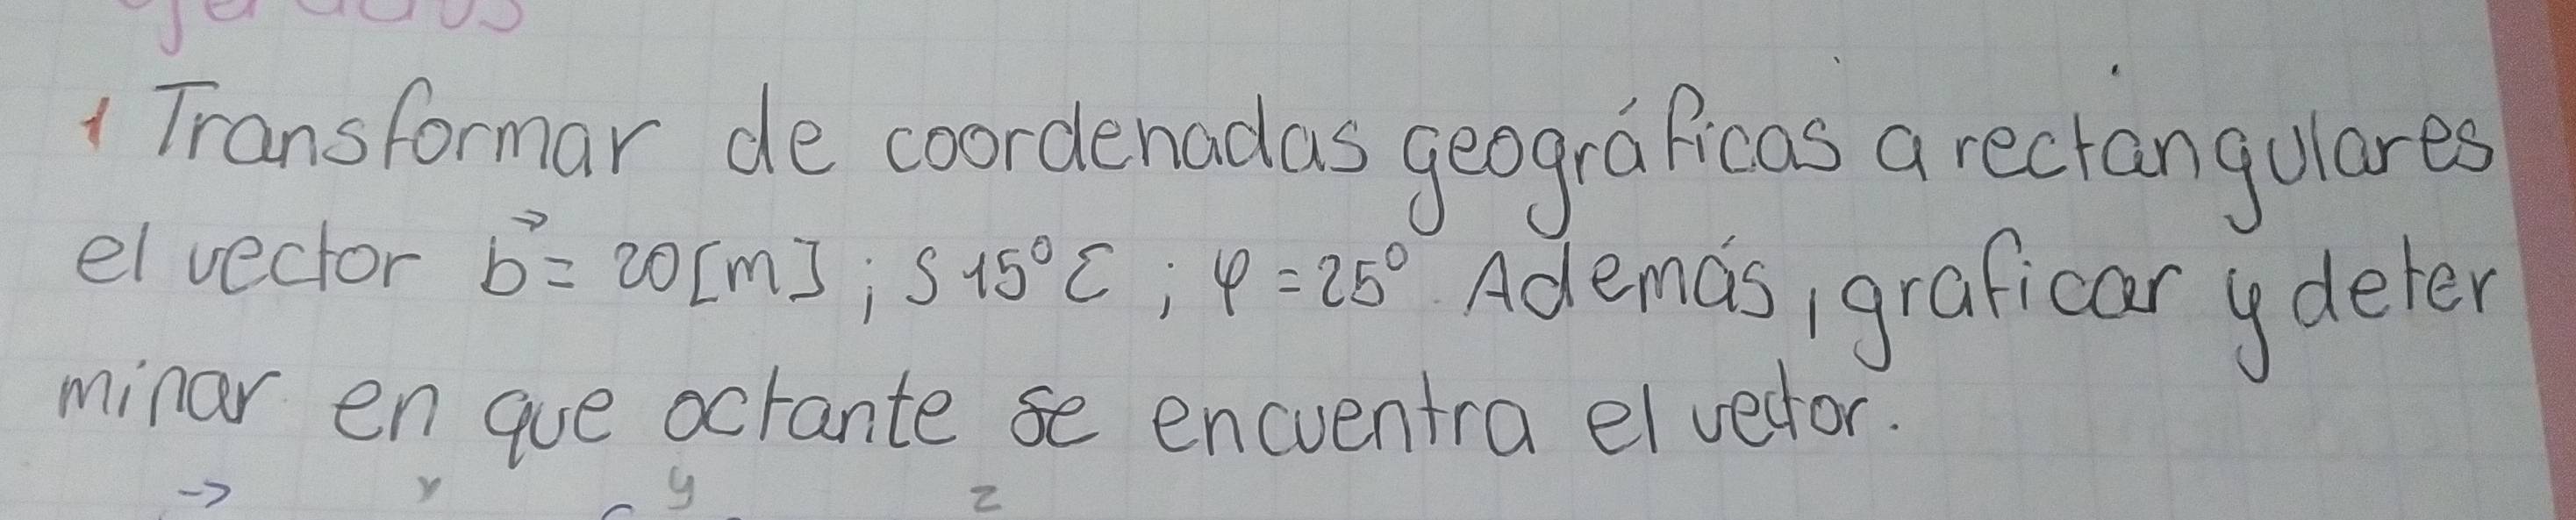 1 Transformar de coordenadas geográficas a rectangulares
el vector b⃗ = 20[m]; S15°E; φ=25°. Además, graficar y deter
minar en que octante se encuentra el vector.
→ x y z